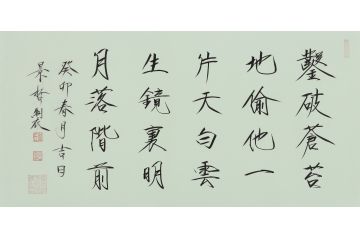 鑿破蒼苔
地偷他一
片天白雲
生鏡裏明
月落階前
癸卯春月吉日